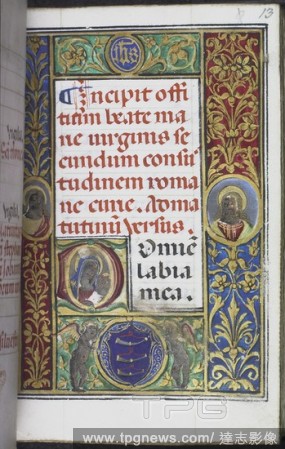 13
ihs
Incipit offi
tium beate ma
rie uirginis se
cundum consue
tudinem roma
ne curie. Ad ma
tutinum Versus.
Domine
labia
mea.
TPG
www.tpgnews.com/ 達志影像